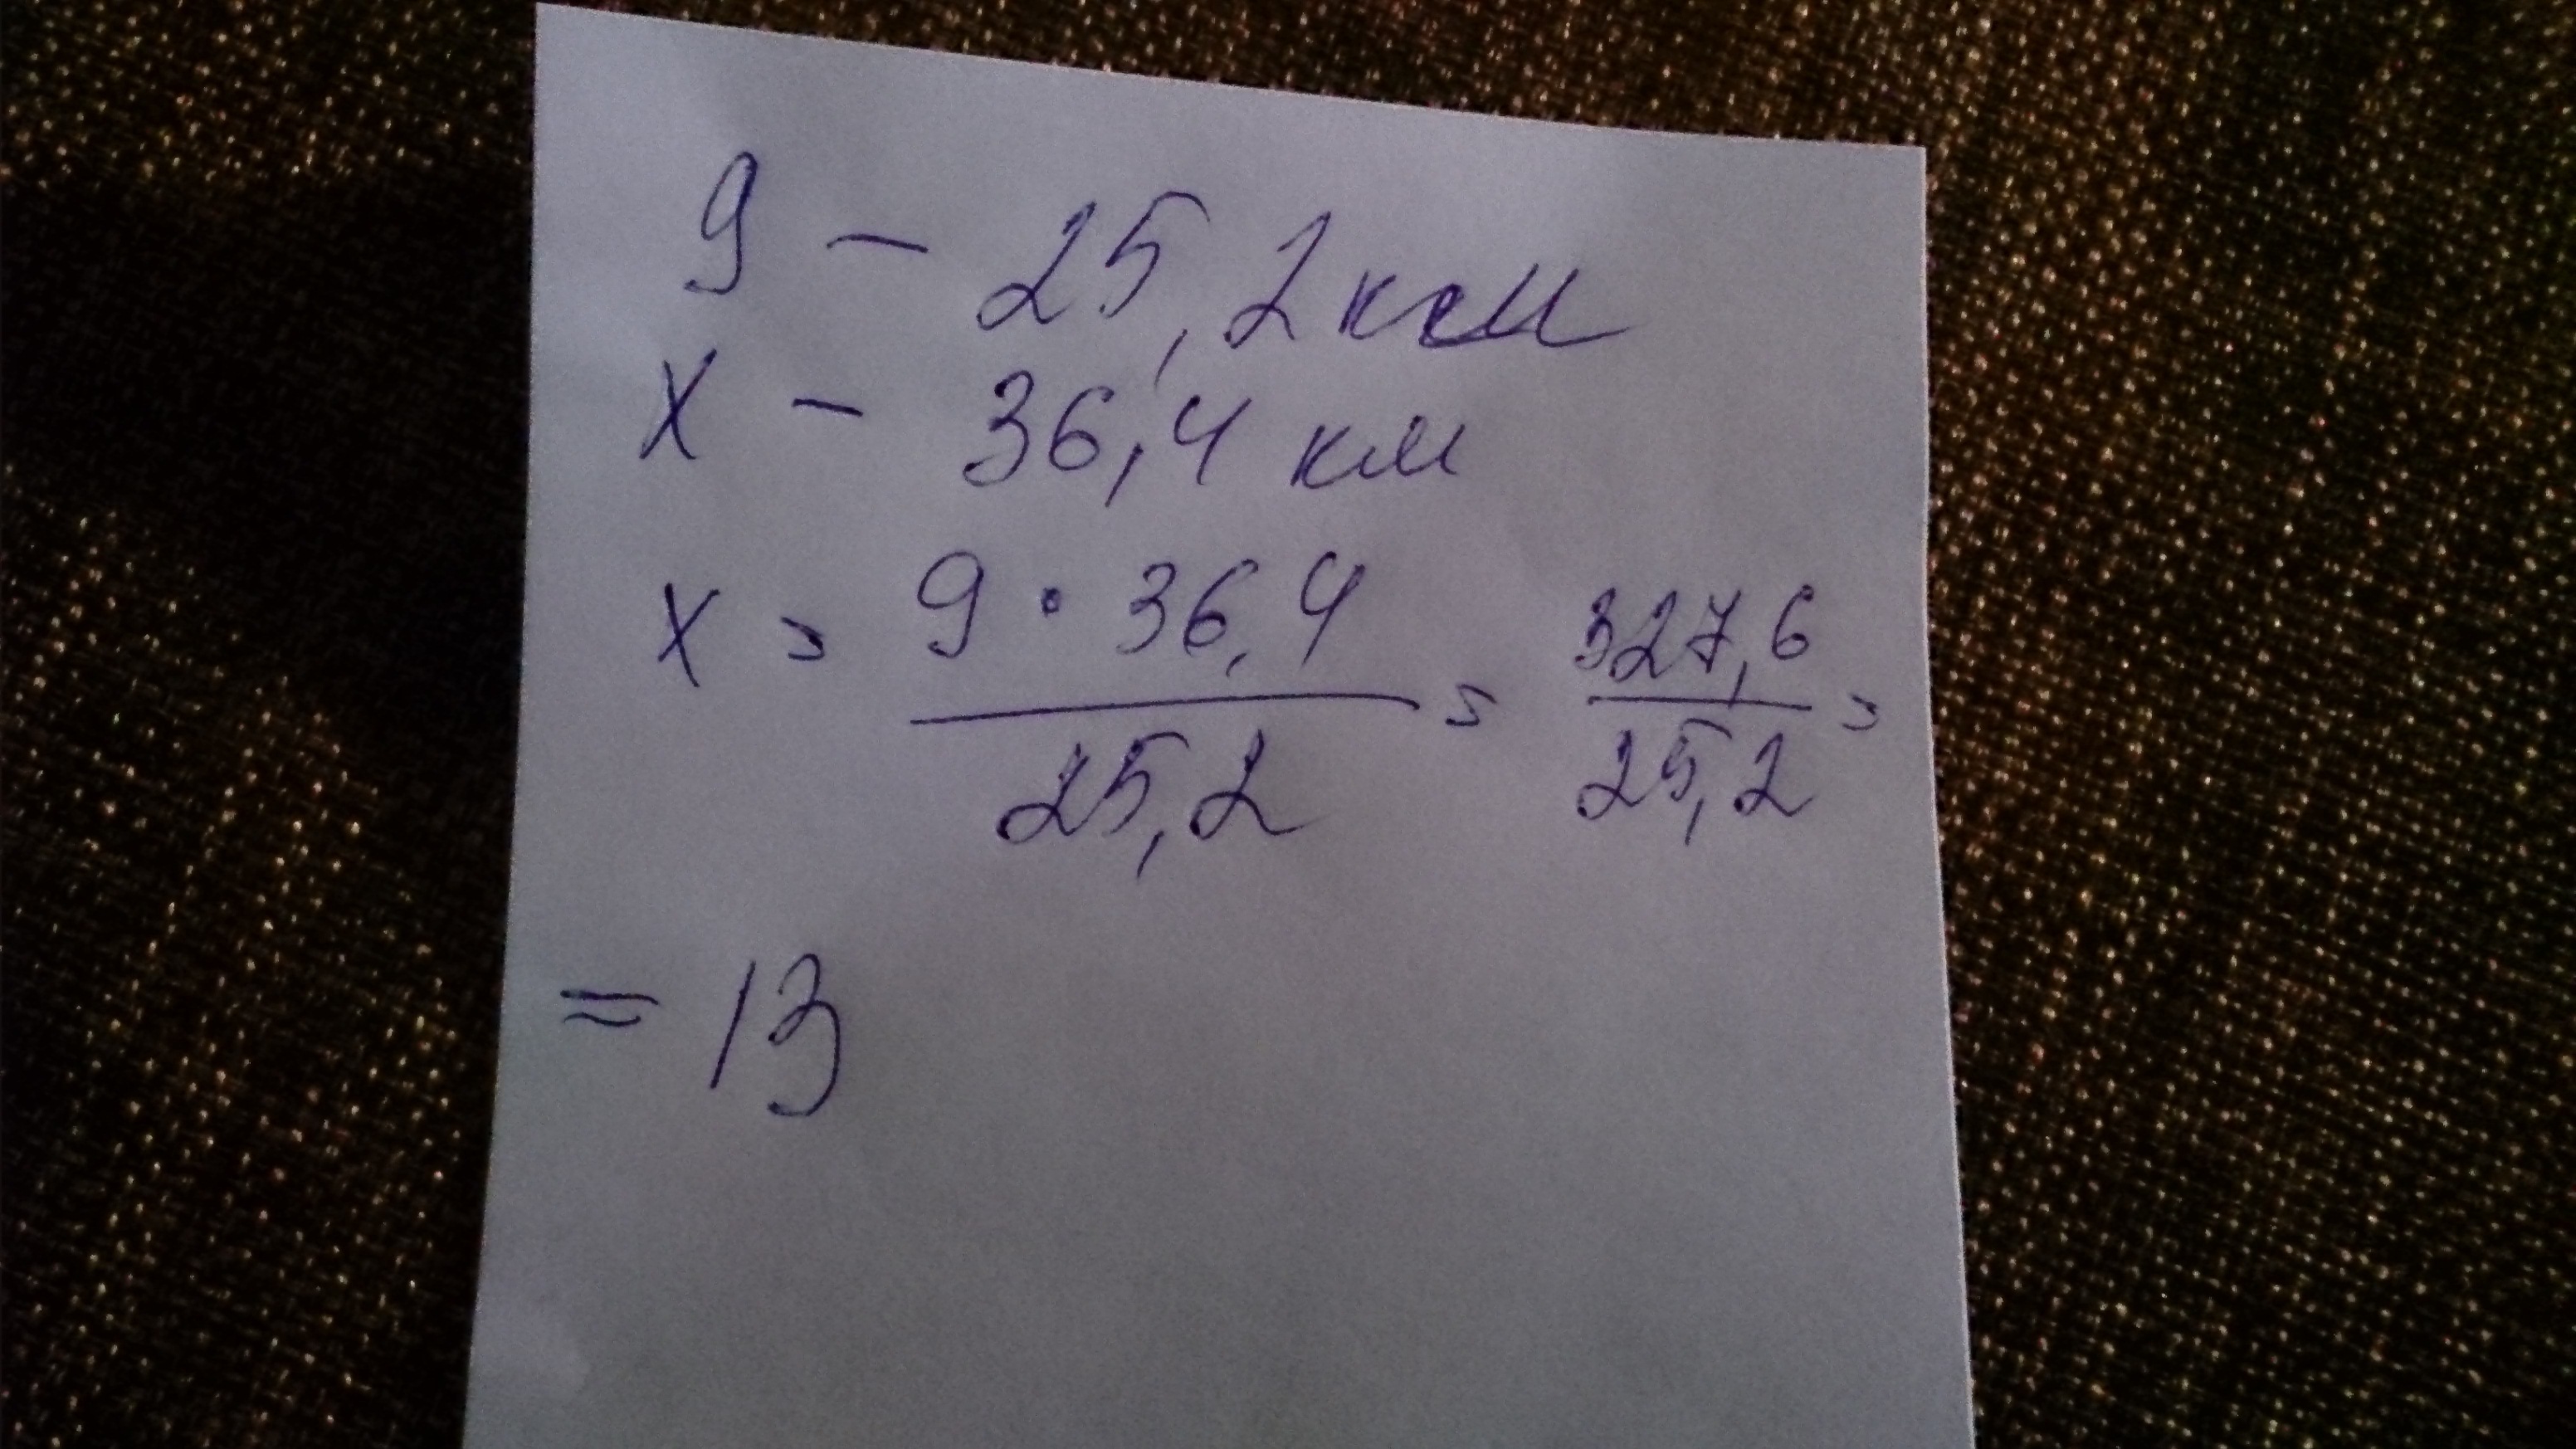 9 - 25,2 км
x - 36,4 км
x = 9 · 36,4 / 25,2 = 327,6 / 25,2 =
= 13